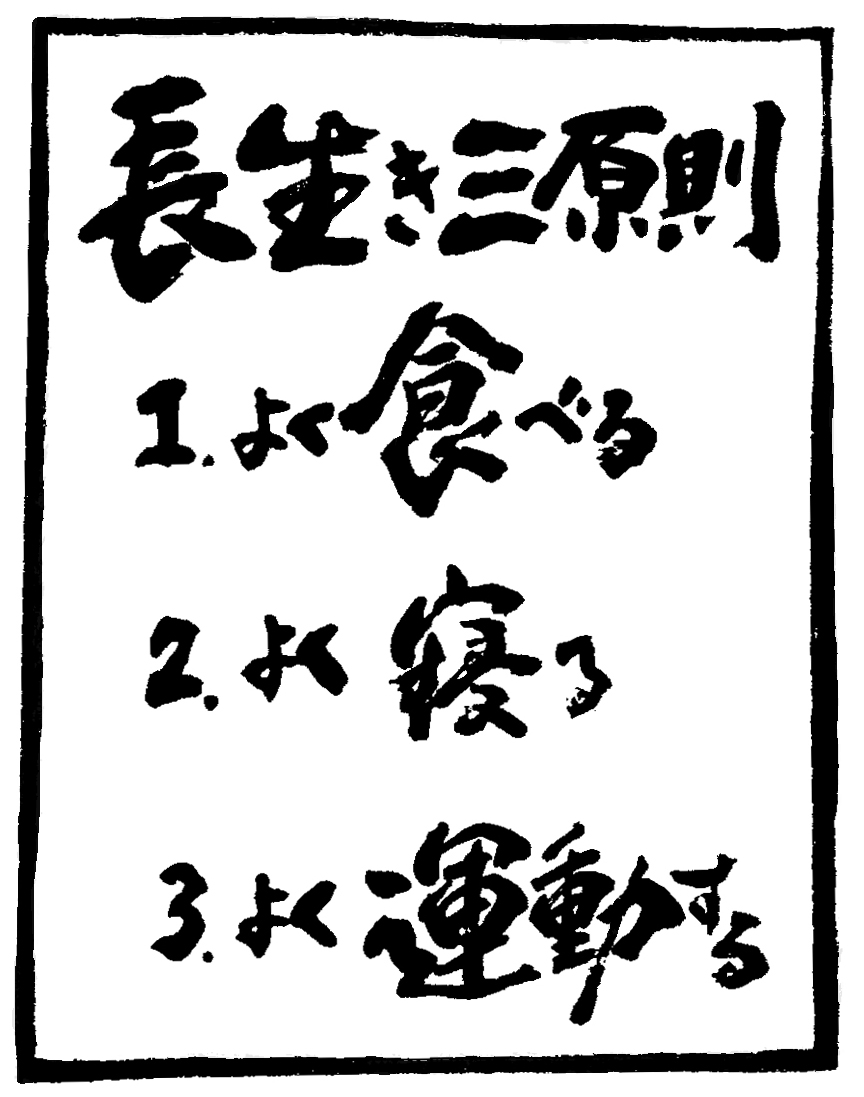 長生き三原則
1. よく食べる
2. よく寝る
3. よく運動する